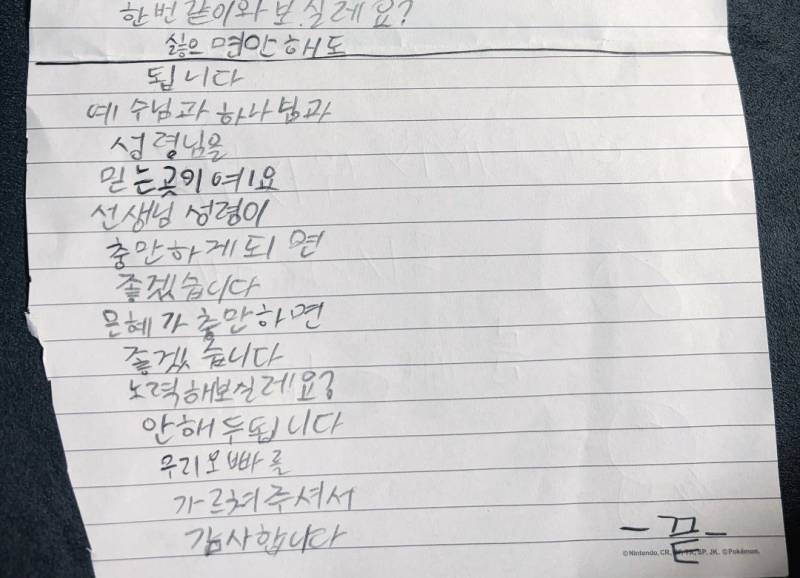 한번같이와보실레요?
싫으면안해도
됩니다
예수님과하나님과
성령님을
믿는곳이예요
선생님 성령이
충만하게되면
좋겠습니다
은혜가충만하면
좋겠습니다
노력해보실레요?
안해두됩니다
우리오빠를
가르쳐주셔서
감사합니다
-끝-
©Nintendo, CR, GF, TX, SP, JK. ©Pokémon.